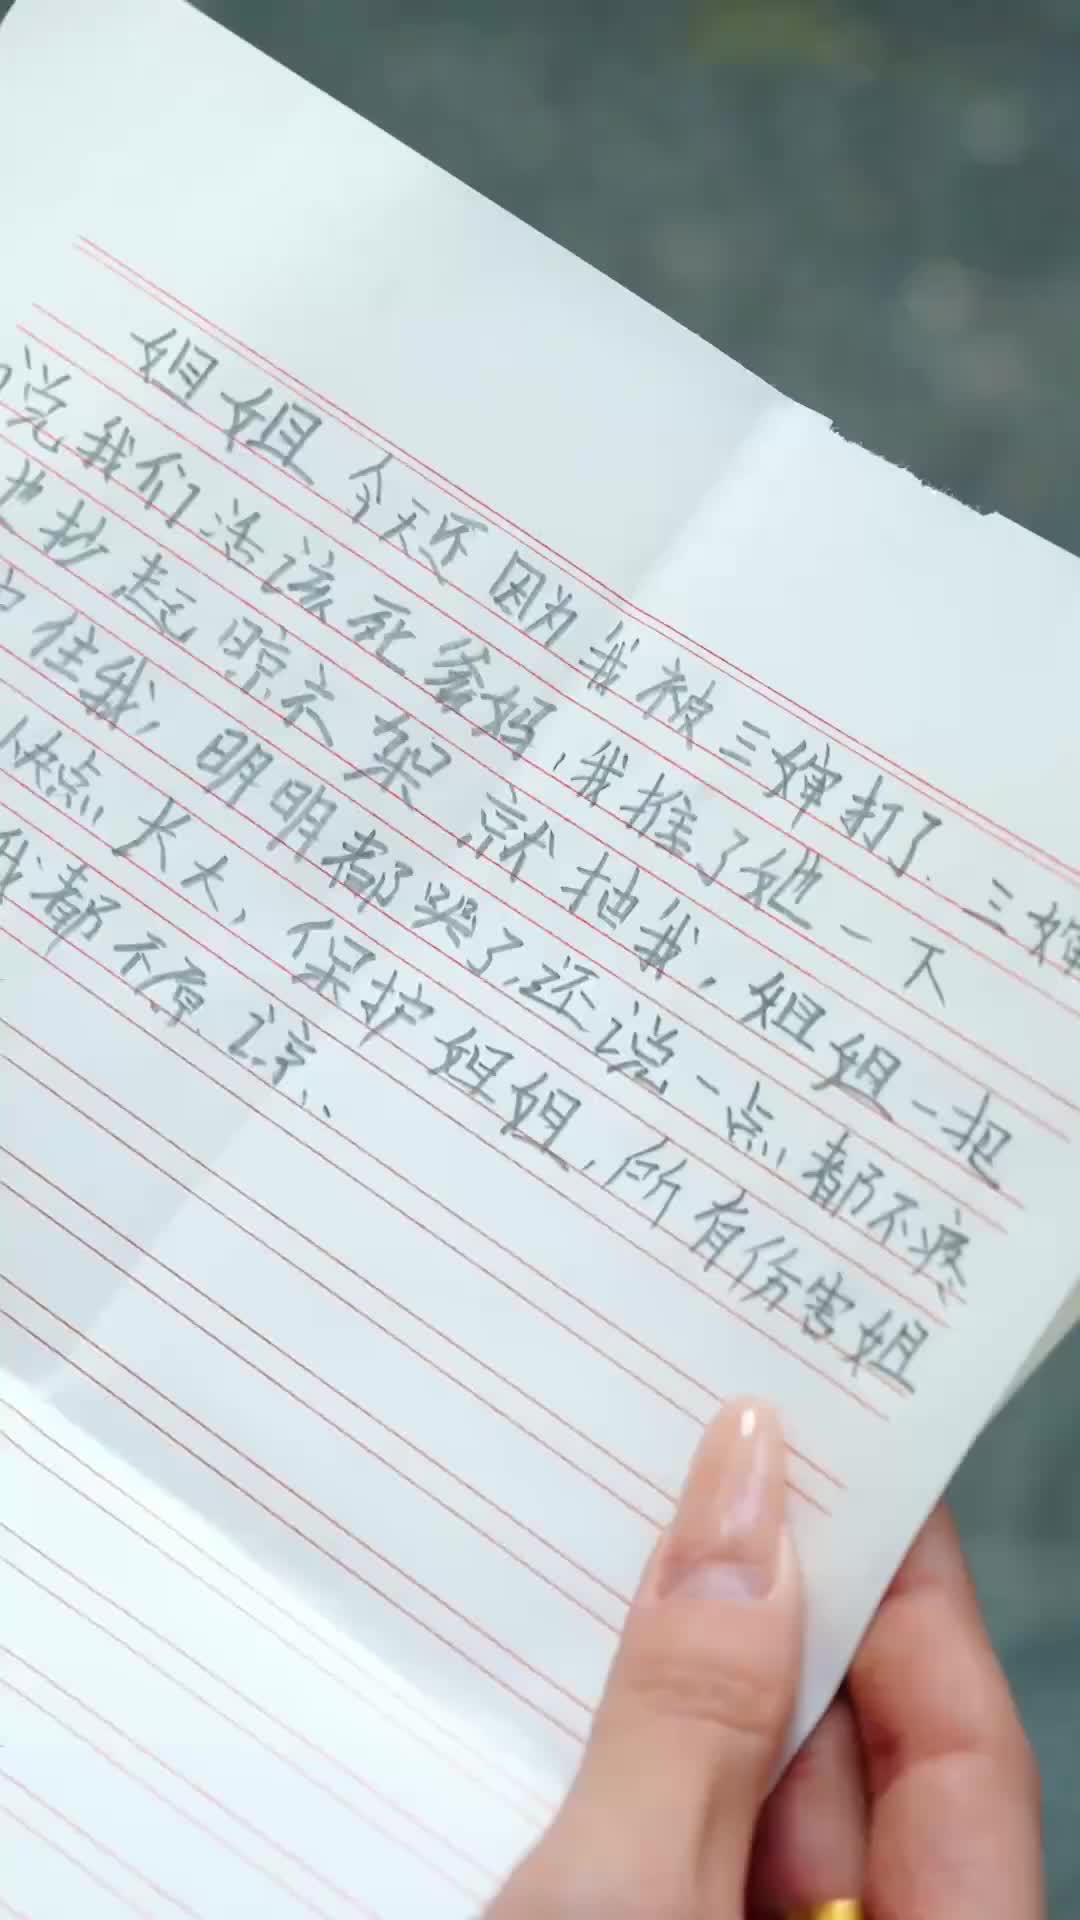 姐姐今天还因为我被三婶打了.三婶
说我们活该死爹妈,我推了她一下
她抄起晾衣架就抽我,姐姐一把
住我,明明都哭了,还说一点都不疼
快点长大,保护姐姐,所有伤害姐
我都不原谅..